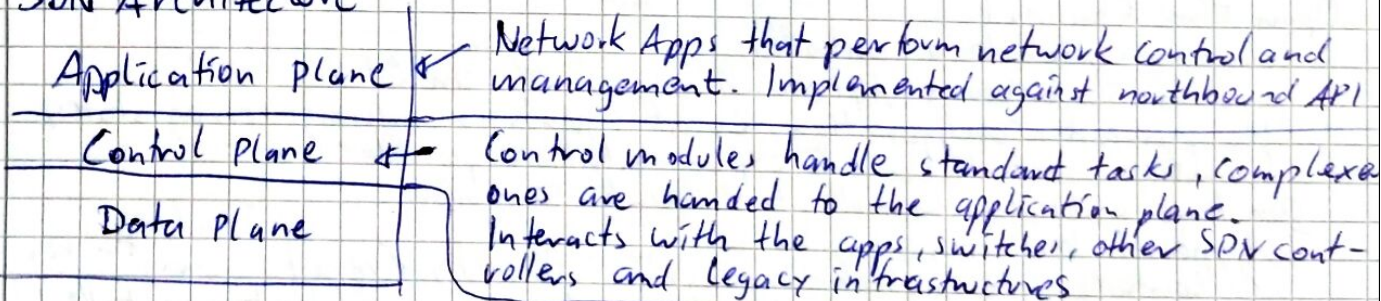 SDN Architecture
Application plane
Network Apps that perform network control and
management. Implemented against northbound API
Control plane
Control modules handle standard tasks, complexe
ones are handed to the application plane.
Interacts with the apps, switches, other SDN cont-
rollers and legacy infrastructures
Data Plane